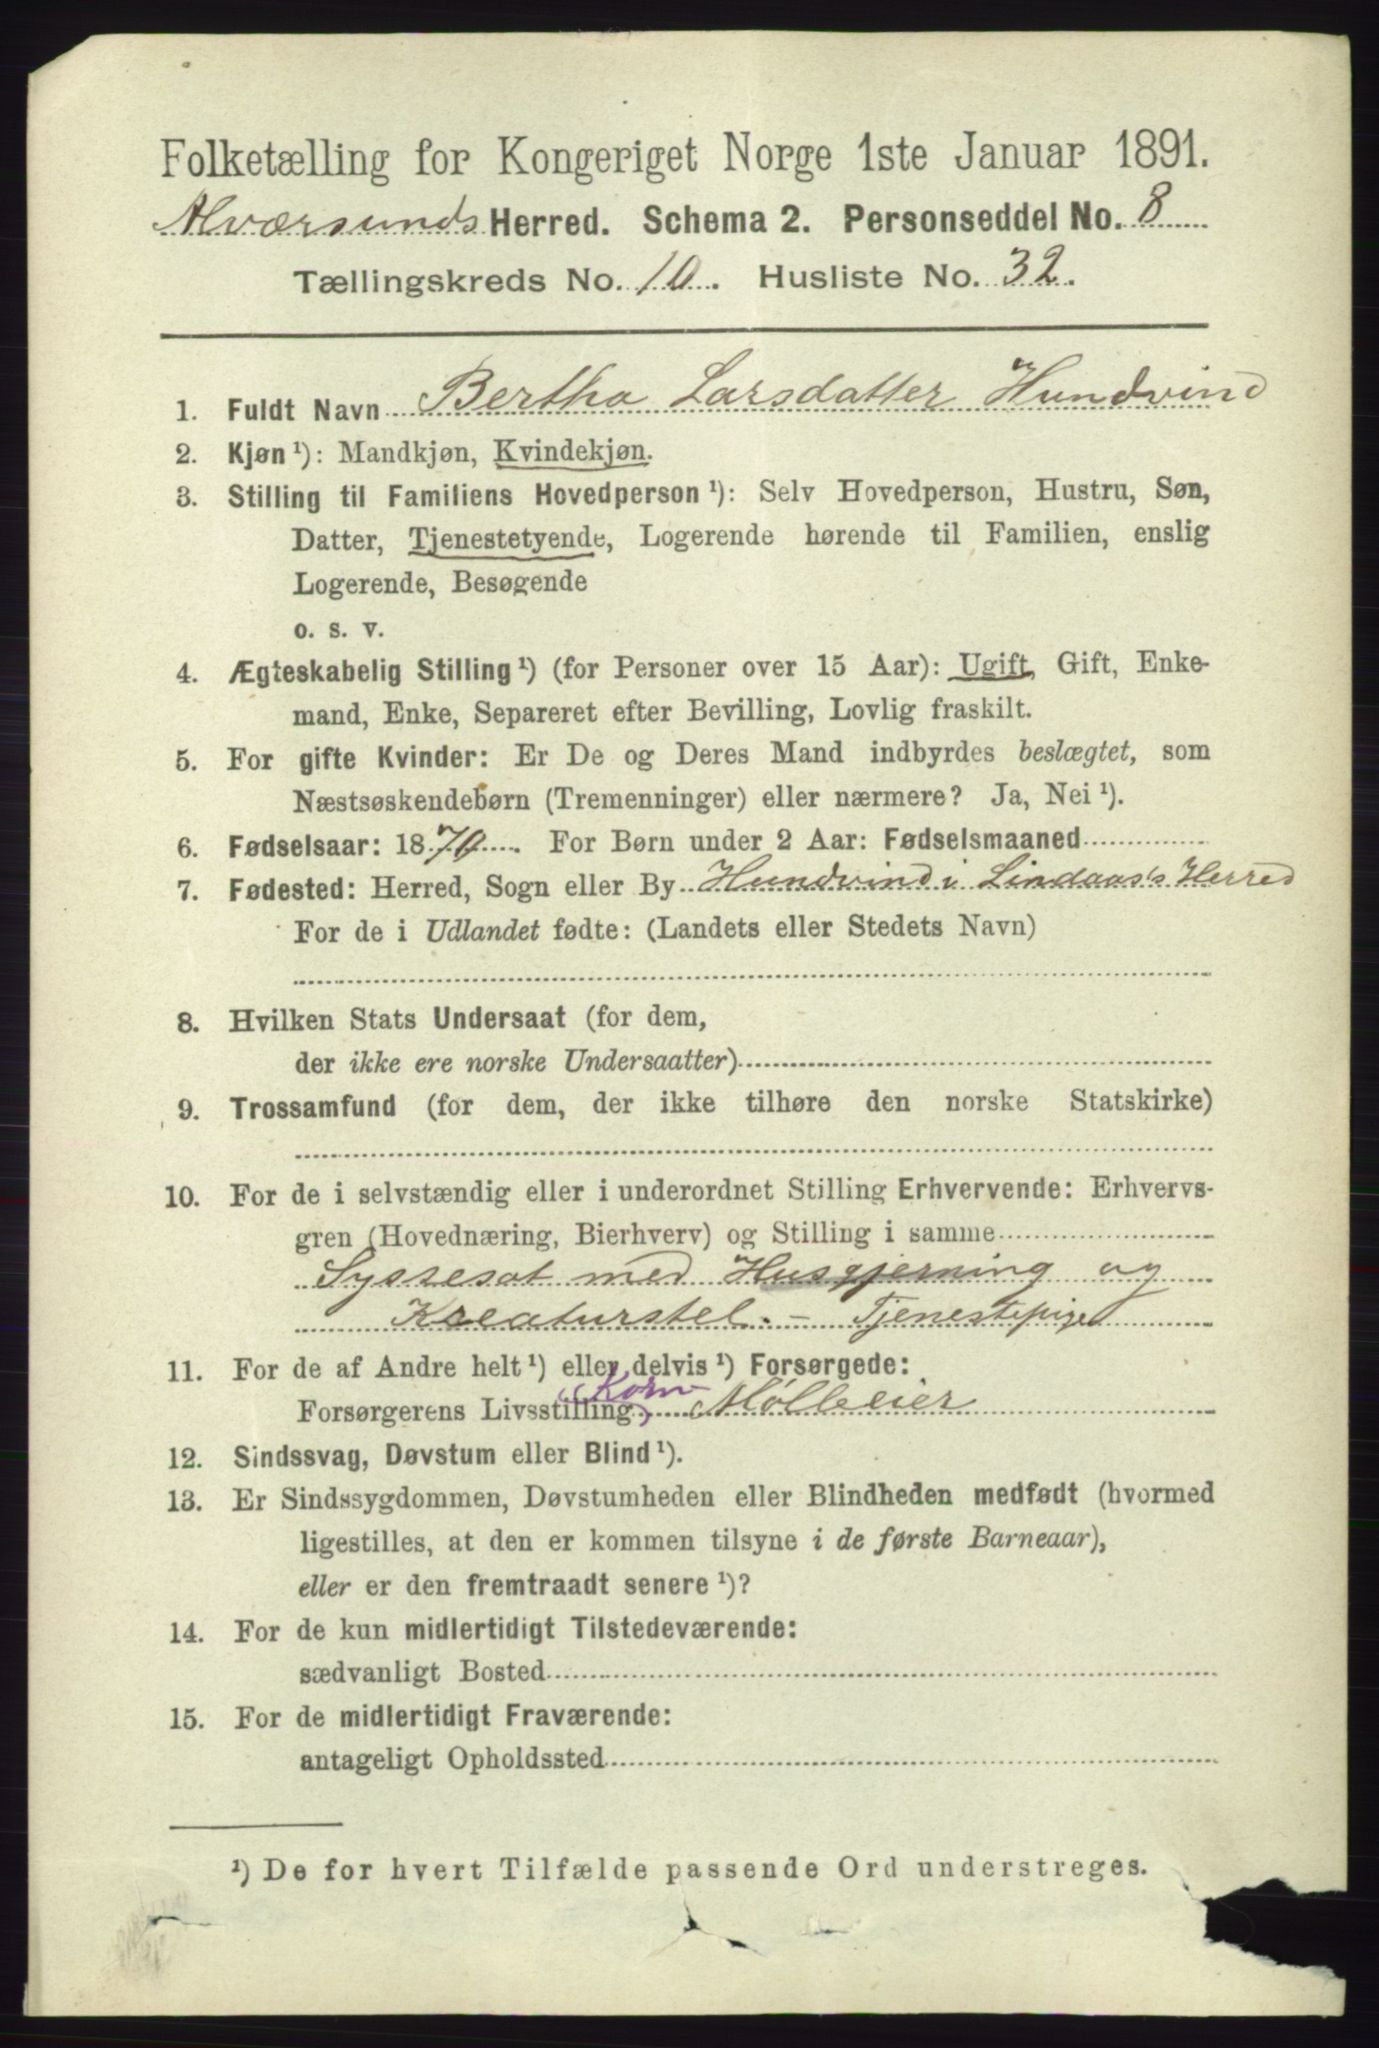 Folketælling for Kongeriget Norge 1ste Januar 1891.
Alværsunds Herred. Schema 2. Personseddel No. 8
Tællingskreds No. 10. Husliste No. 32.
1. Fuldt Navn Bertha Larsdatter Hundvind
2. Kjøn ¹): Mandkjøn, Kvindekjøn.
3. Stilling til Familiens Hovedperson ¹): Selv Hovedperson, Hustru, Søn,
Datter, Tjenestetyende, Logerende hørende til Familien, enslig
Logerende, Besøgende
o. s. v.
4. Ægteskabelig Stilling ¹) (for Personer over 15 Aar): Ugift, Gift, Enke-
mand, Enke, Separeret efter Bevilling, Lovlig fraskilt.
5. For gifte Kvinder: Er De og Deres Mand indbyrdes beslægtet, som
Næstsøskendebørn (Tremenninger) eller nærmere? Ja, Nei ¹).
6. Fødselsaar: 1870. For Børn under 2 Aar: Fødselsmaaned
7. Fødested: Herred, Sogn eller By Hundvind i Lindaas's Herred
For de i Udlandet fødte: (Landets eller Stedets Navn)
8. Hvilken Stats Undersaat (for dem,
der ikke ere norske Undersaatter)
9. Trossamfund (for dem, der ikke tilhøre den norske Statskirke)
10. For de i selvstændig eller i underordnet Stilling Erhvervende: Erhvervs-
gren (Hovednæring, Bierhverv) og Stilling i samme
Syssesat med Husgjerning og
Kreaturstel. – Tjenestepige
11. For de af Andre helt ¹) eller delvis ¹) Forsørgede:
Korn-
Forsørgerens Livsstilling Mølleeier
12. Sindssvag, Døvstum eller Blind ¹).
13. Er Sindssygdommen, Døvstumheden eller Blindheden medfødt (hvormed
ligestilles, at den er kommen tilsyne i de første Barneaar),
eller er den fremtraadt senere ¹)?
14. For de kun midlertidigt Tilstedeværende:
sædvanligt Bosted
15. For de midlertidigt Fraværende:
antageligt Opholdssted
¹) De for hvert Tilfælde passende Ord understreges.